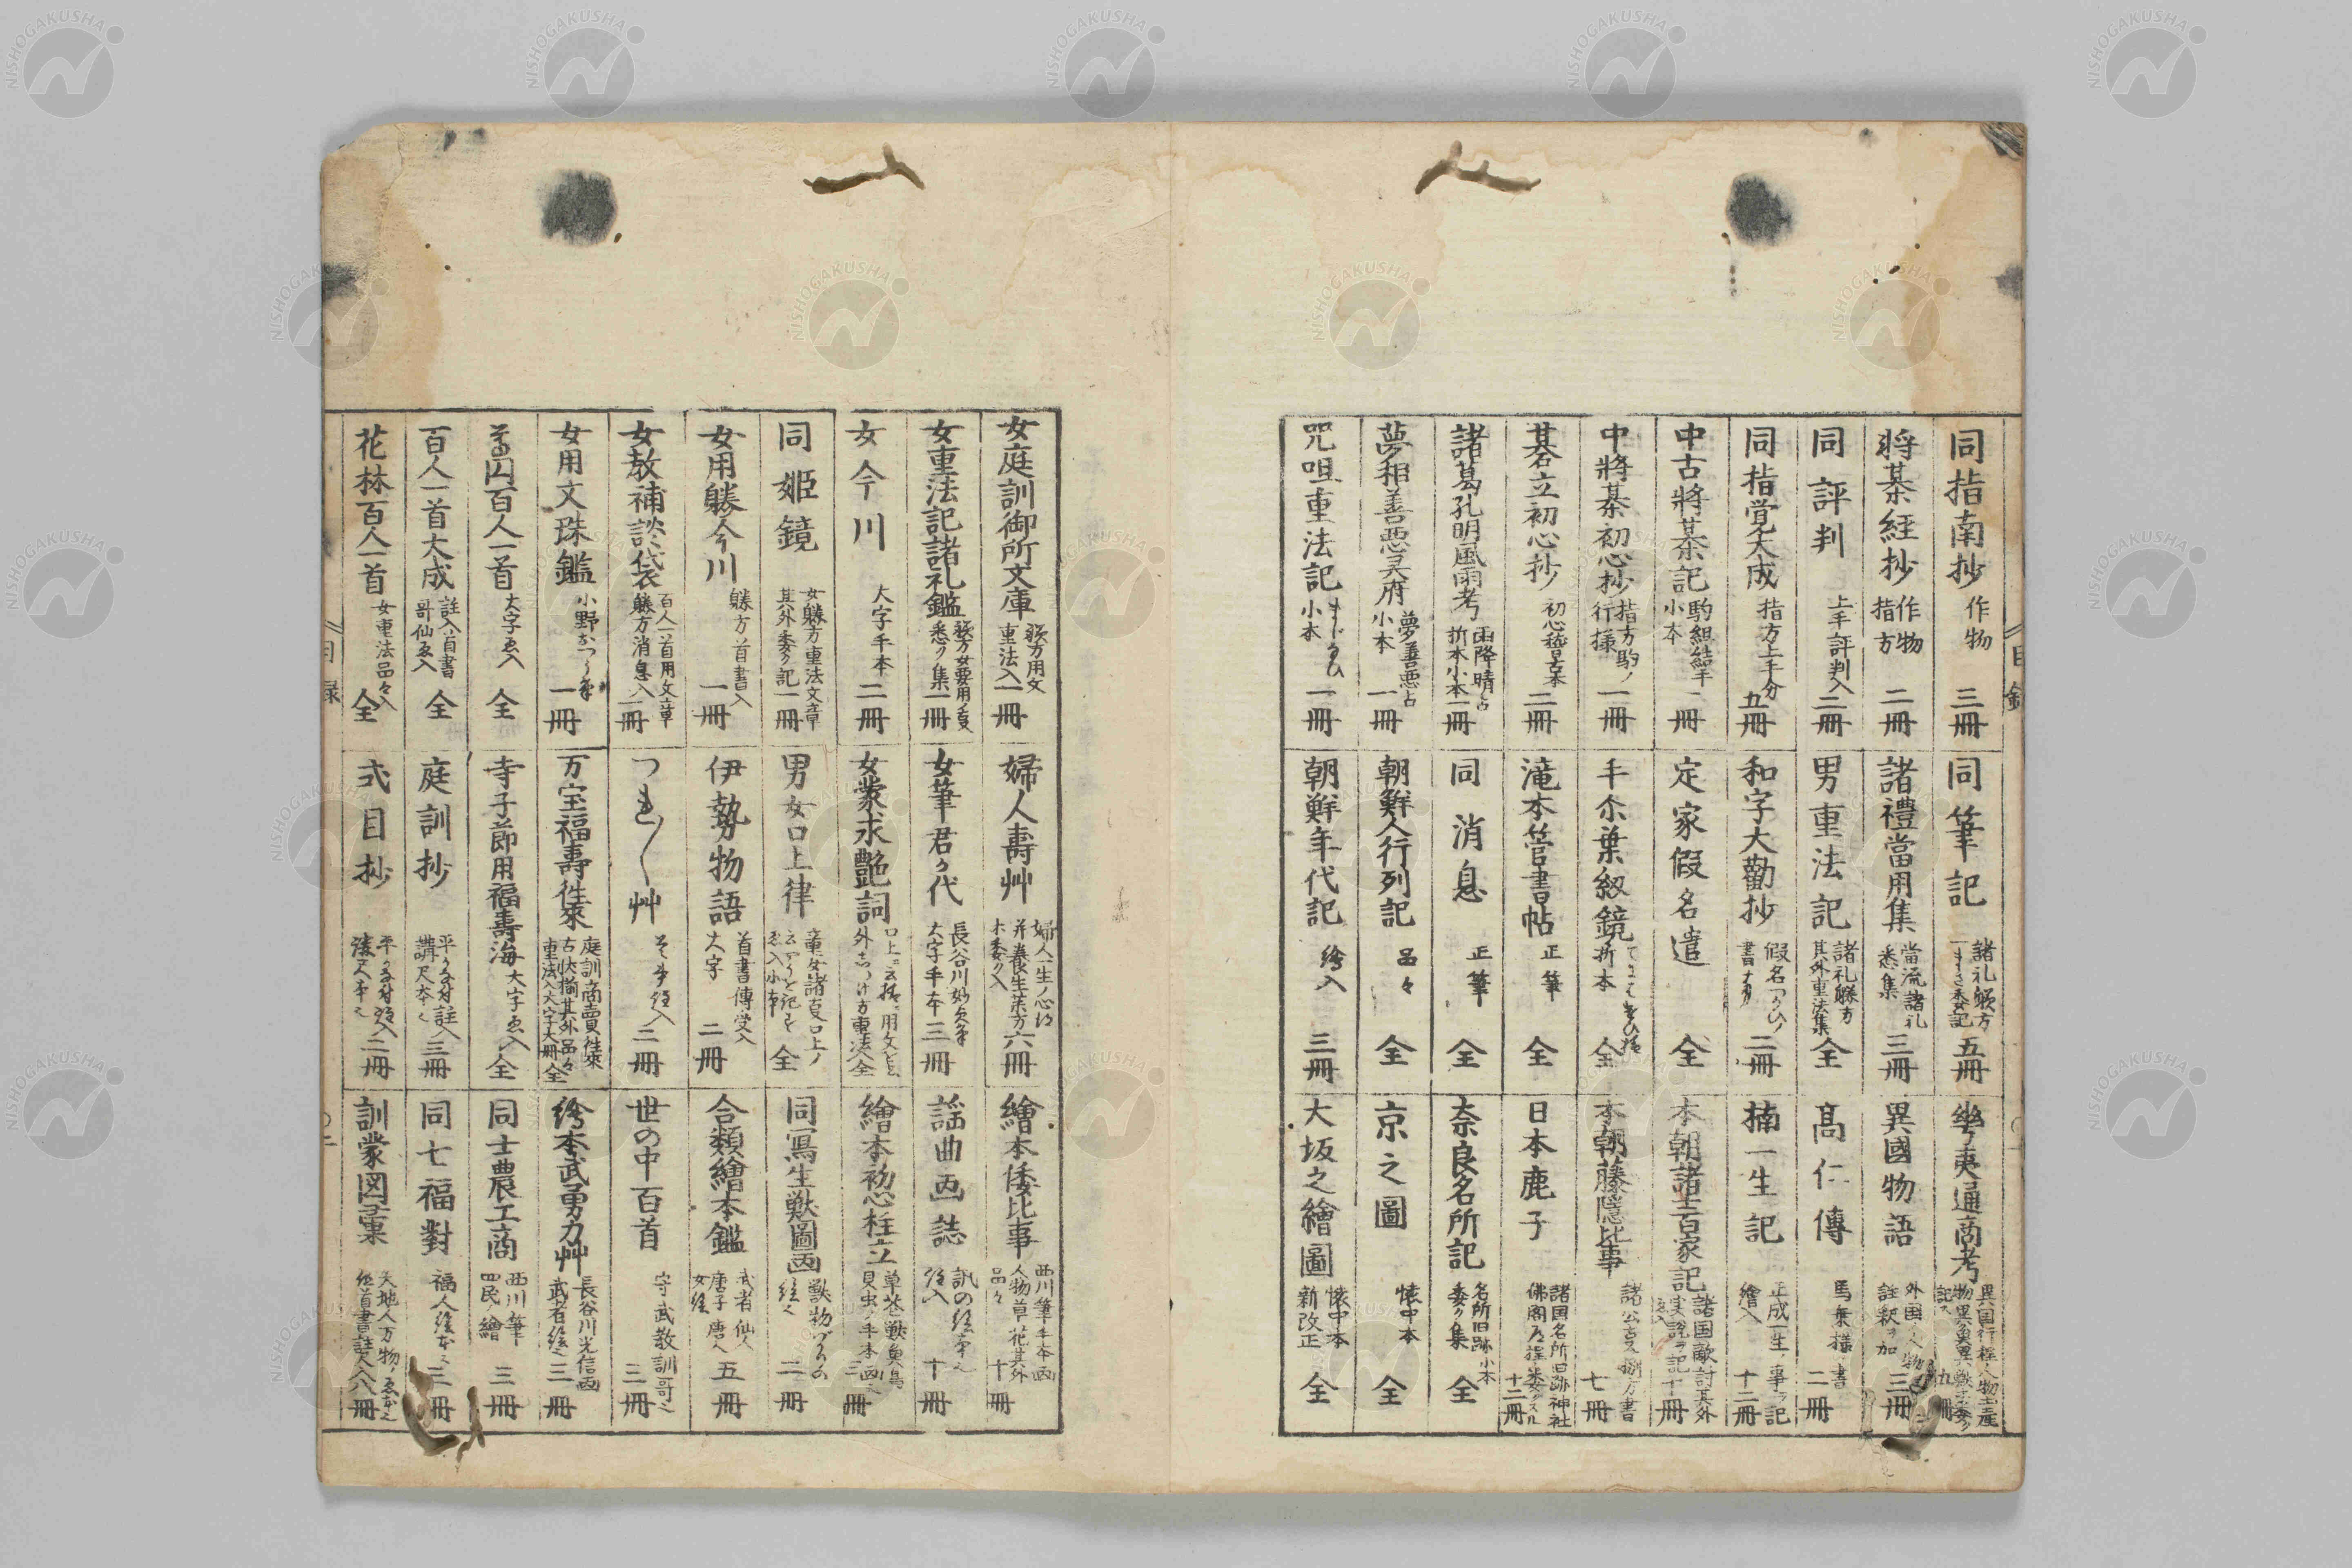 同指南抄 作物 三冊
将棊経抄 作物 指方 二冊
同評判 上手評判入 二冊
同指覚大成 指方上手分 五冊
中古将棊記 駒組結手 小本 一冊
中将棊初心抄 指方駒ノ 行様 一冊
碁立初心抄 初心稽古本 二冊
諸葛孔明風雨考 雨降晴占 折本小本 一冊
夢相善悪灵府 夢善悪占 小本 一冊
咒咀重法記 小本 一冊
同筆記 諸礼躾方 五冊
諸禮當用集 當流諸礼 悉集 三冊
男重法記 諸礼躾方 其外重法集 全
和字大勸抄 假名つかひノ 二冊
定家假名遣 全
手尒葉紉鏡 折本 全
滝本管書帖 正筆 全
同消息 正筆 全
朝鮮人行列記 品々 全
朝鮮年代記 絵入 三冊
華夷通商考
異國物語 外国ノ人物 註釈ヲ加 三冊
髙仁傳 馬乗様ノ書 二冊
楠一生記 正成一生ノ事ヲ記 繪入 十二冊
本朝諸士百家記 諸国敵討其外 実説ヲ記 十冊
本朝藤隠比事 七冊
日本鹿子 諸国名所旧跡神社 十二冊
奈良名所記 名所旧跡 委ク集 小本 全
京之圖 懐中本 全
大坂之繪圖 懐中本 新改正 全
目録
女庭訓御所文庫 躾方用文 重法入 一冊
女重法記諸礼鑑 躾方女要用 悉ク集 一冊
女今川 大字手本 二冊
同姫鏡 女躾方重法文章 其外委ク記 一冊
女用躾今川 躾方首書入 一冊
女教補談袋 百人一首用文章 躾方消息入 一冊
女用文珠鑑 小野おつう筆 一冊
百人一首 大字ゑ入 全
百人一首大成 註入首書 哥仙ゑ入 全
花林百人一首 女重法品々入 全
婦人壽艸 六冊
女筆君か代 長谷川妙貞筆 大字手本 三冊
女蒙求艶詞 全
男女口上律 全
伊勢物語 首書傳受入 大字 二冊
つれ〱艸 二冊
万宝福壽徃来 庭訓商賣徃来 全
寺子節用福壽海 大字ゑ入 全
庭訓抄 三冊
式目抄 二冊
繪本倭比事 西川筆手本画 人物草花其外 品々 十冊
謡曲画誌 十冊
繪本初心柱立 草花獣魚鳥 三冊
同寫生獣圖画 二冊
合類繪本鑑 武者仙人 唐子唐人 女絵 五冊
世の中百首 守武教訓哥之 三冊
絵本武勇力艸 長谷川光信画 武者絵之 三冊
同士農工商 西川筆 四民ノ繪 三冊
同七福對 三冊
訓蒙図彙 八冊
目録